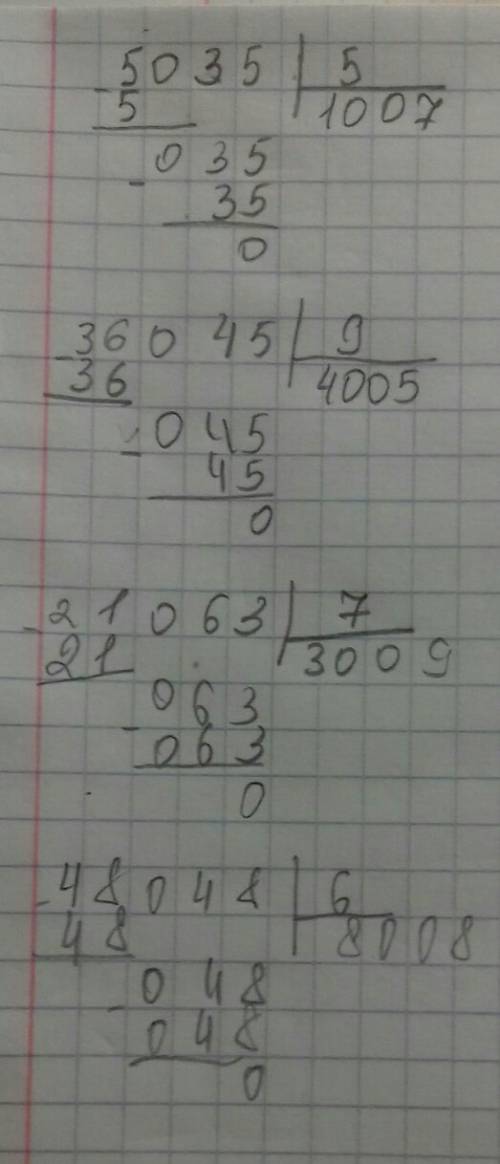 5035 | 5
- 5 1007
- 035
35
0
36045 | 9
- 36 4005
- 045
45
0
21063 | 7
- 21 3009
- 063
063
0
48048 | 6
- 48 8008
- 048
048
0